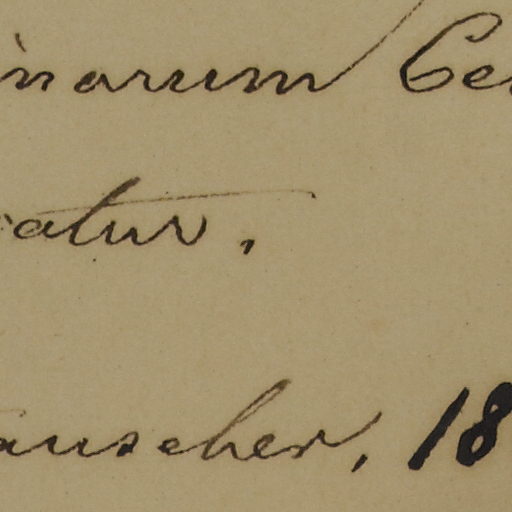 inarum Cen
catur.
auscher, 18